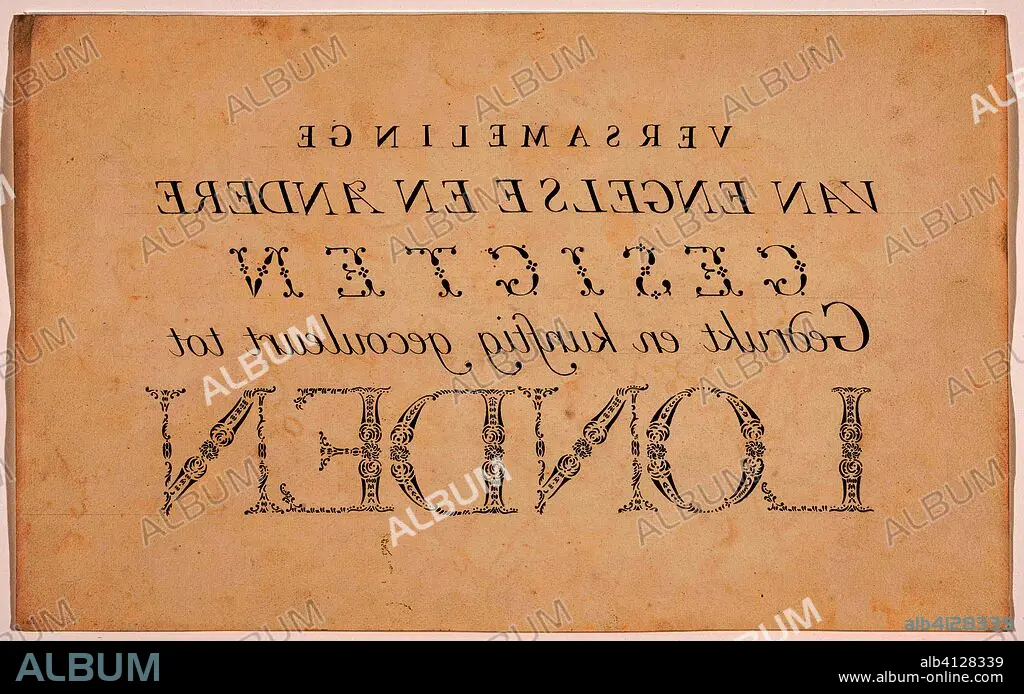 VERSAMELINGE
VAN ENGELSE EN ANDERE
GESIGTEN
Gedrukt en kunstig gecouleurt tot
LONDEN
ALBUM
alb4128339
ALBUM
alb4128339
www.album-online.com